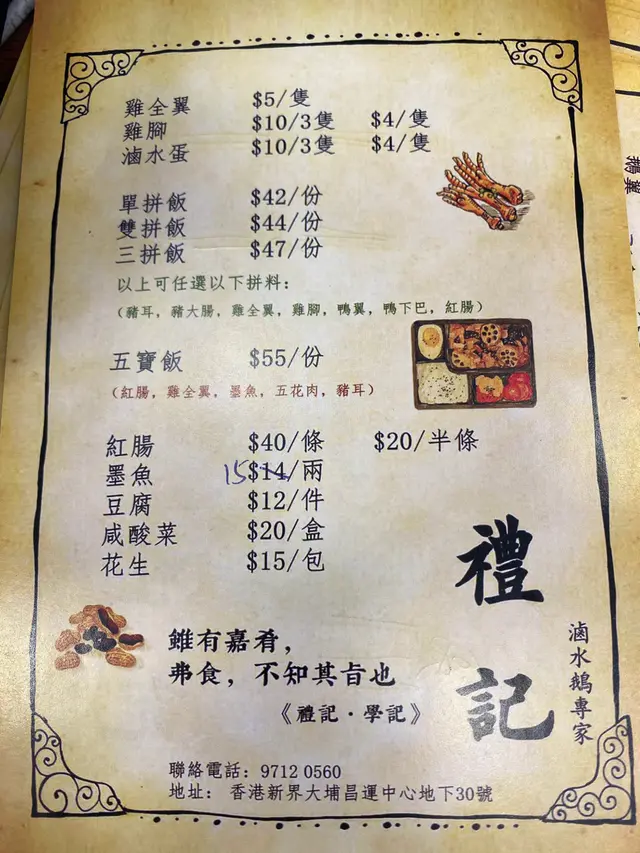 雞全翼 $5/隻
雞腳 $10/3隻 $4/隻
滷水蛋 $10/3隻 $4/隻
單拼飯 $42/份
雙拼飯 $44/份
三拼飯 $47/份
以上可任選以下拼料:
(豬耳, 豬大腸, 雞全翼, 雞腳, 鴨翼, 鴨下巴, 紅腸)
五寶飯 $55/份
(紅腸, 雞全翼, 墨魚, 五花肉, 豬耳)
紅腸 $40/條 $20/半條
墨魚 15 $14/兩
豆腐 $12/件
咸酸菜 $20/盒
花生 $15/包
禮記
滷水鵝專家
雖有嘉肴,
弗食, 不知其旨也
《禮記·學記》
聯絡電話: 9712 0560
地址: 香港新界大埔昌運中心地下30號